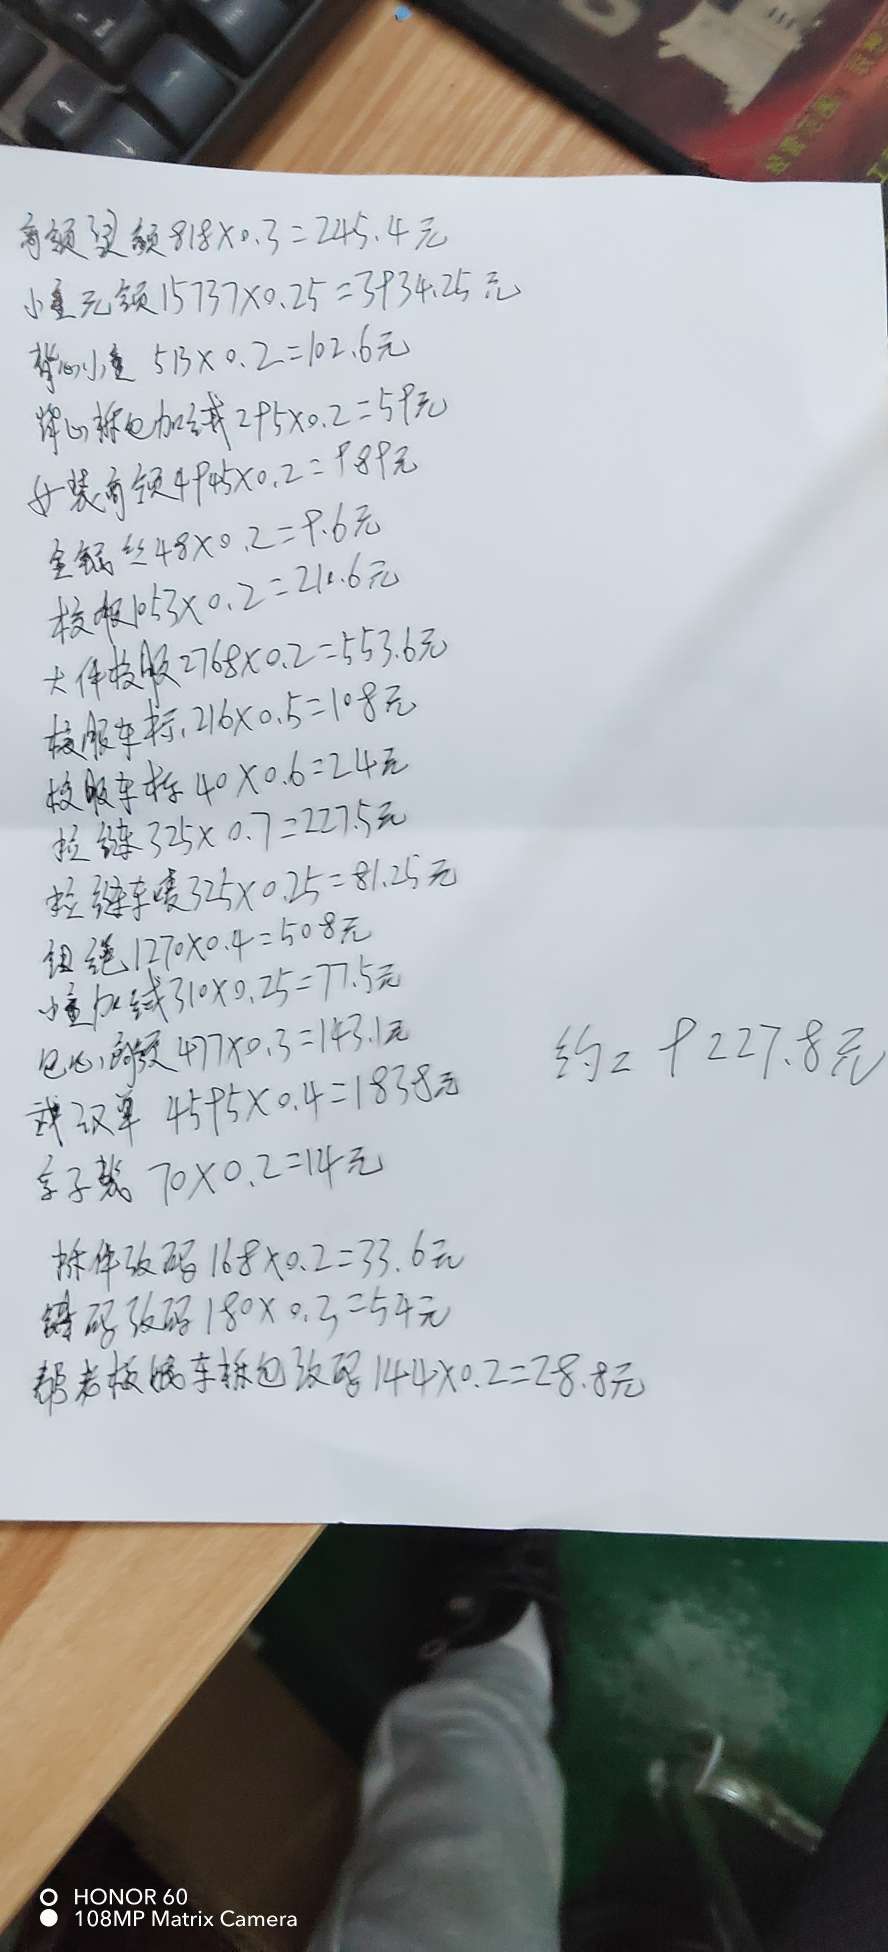 高领 领 818×0.3=245.4元
小童元领15737×0.25=3934.25元
背心小童 513×0.2=102.6元
背心拆包加绒295×0.2=59元
女装高领4945×0.2=989元
金 丝48×0.2=9.6元
校服1053×0.2=210.6元
大件校服2768×0.2=553.6元
校服车标.216×0.5=108元
校服车标 40×0.6=24元
拉链325×0.7=227.5元
拉链车 325×0.25=81.25元
1270×0.4=508元
小童加绒310×0.25=77.5元
包心高领477×0.3=143.1元
约= 9227.8元
武汉单 4595×0.4=1838元
亲子装 70×0.2=14元
拆件改码168×0.2=33.6元
改码180×0.3=54元
帮老板娘车拆包改码144×0.2=28.8元
HONOR 60
108MP Matrix Camera